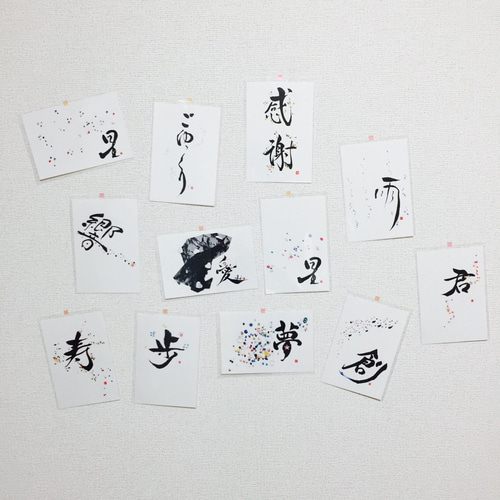 星
ごゆるり
感
謝
雨
響
愛
星
君
寿
歩
夢
創